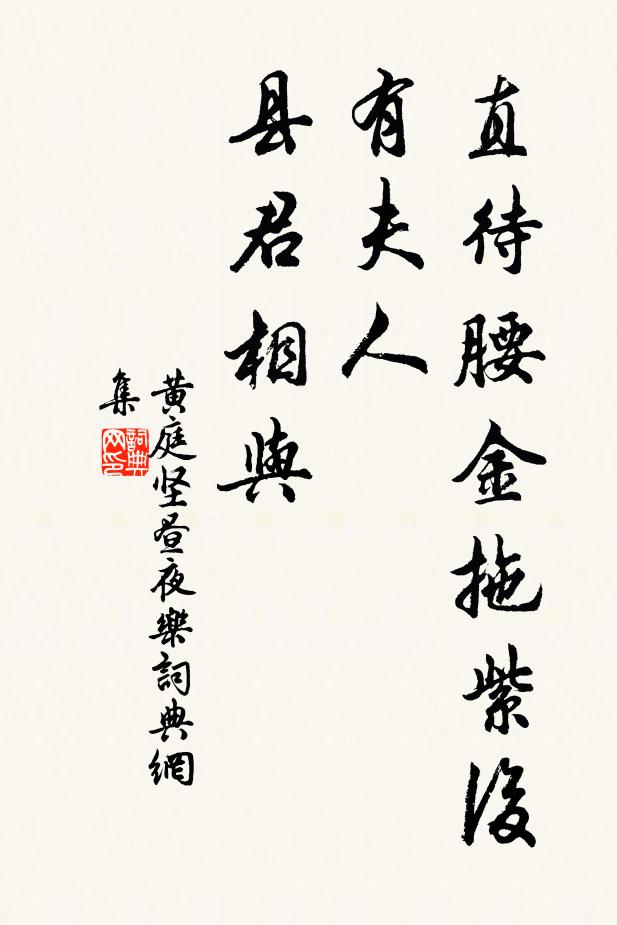 直待腰金拖紫後
有夫人
县君相與
黄庭坚昼夜樂詞典網
集
詞典
网印